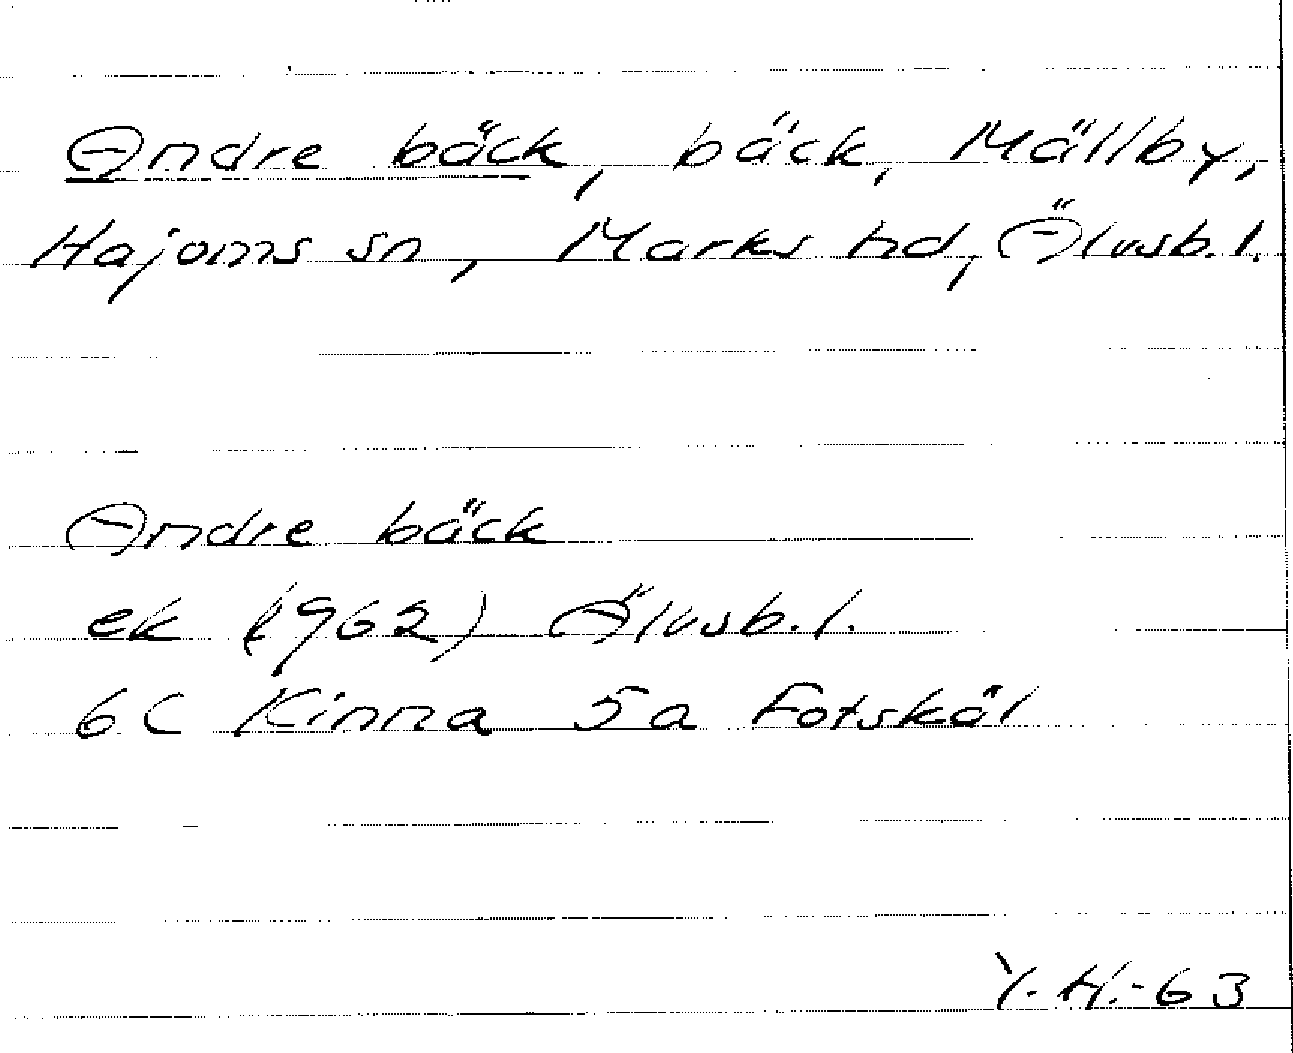 Andre bäck, bäck, Mällby,
Hajoms sn, Marks hd, Älvsb. l.
Andre bäck
ek (1962) Älvsb. l.
6C Kinna 5a Fotskäl
Y. H. -63